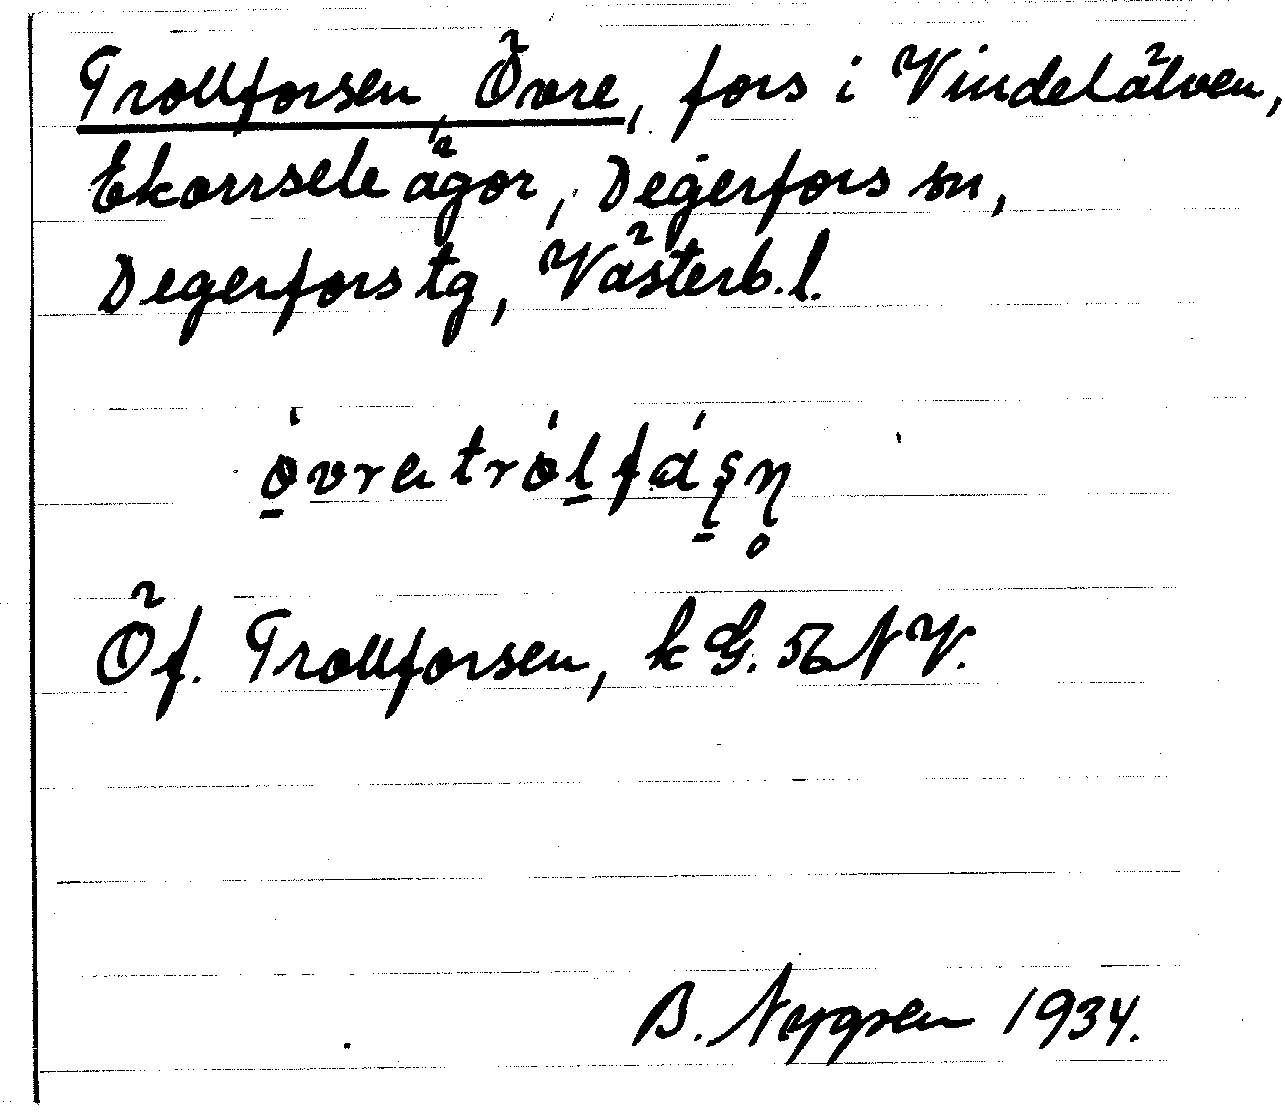 Trollforsen, Övre, fors i Vindelälven,
Ekorrsele ägor, Degerfors sn,
Degerfors tg, Västerb. l.
övra trólfáʂɳ̥
Öf. Trollforsen, k G. 56 NV.
B. Nygren 1934.